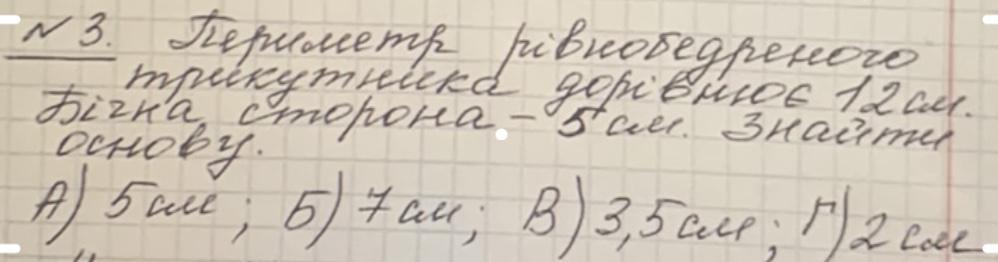 № 3. Периметр рівнобедреного
трикутника дорівнює 12 см.
Бічна сторона – 5 см. Знайти
основу.
А) 5 см ; Б) 7 см; В) 3,5 см ; Г) 2 см